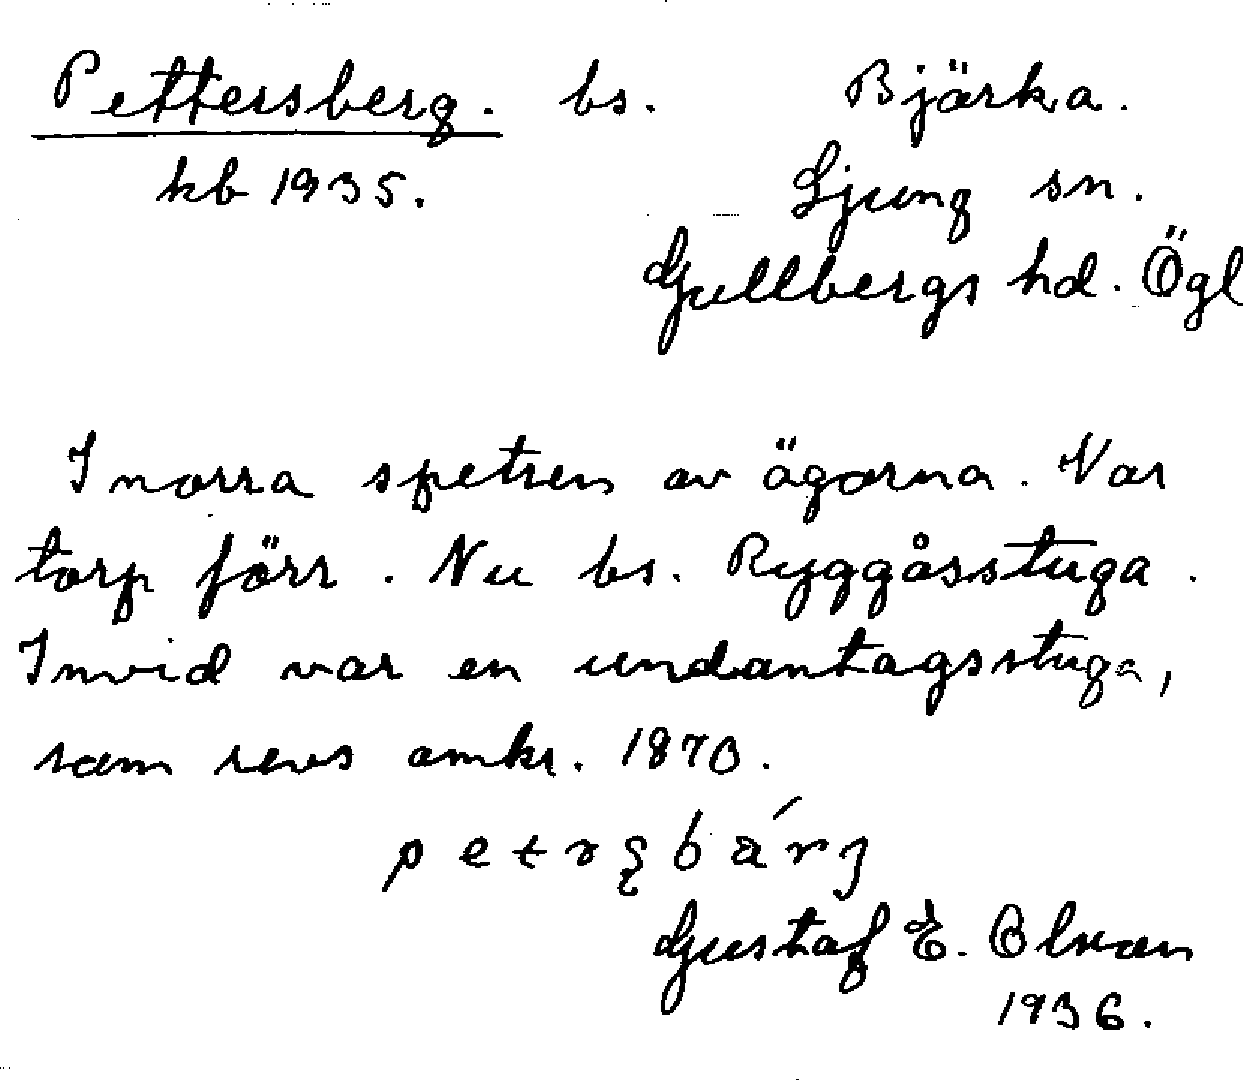 Pettersberg. bs. Bjärka.
kb 1935. Ljung sn.
Gullbergs hd. Ögl
I norra spetsen av ägorna. Var
torp förr. Nu bs. Ryggåsstuga.
Invid var en undantagsstuga,
som revs omkr. 1870.
Gustaf E. Olson
1936.